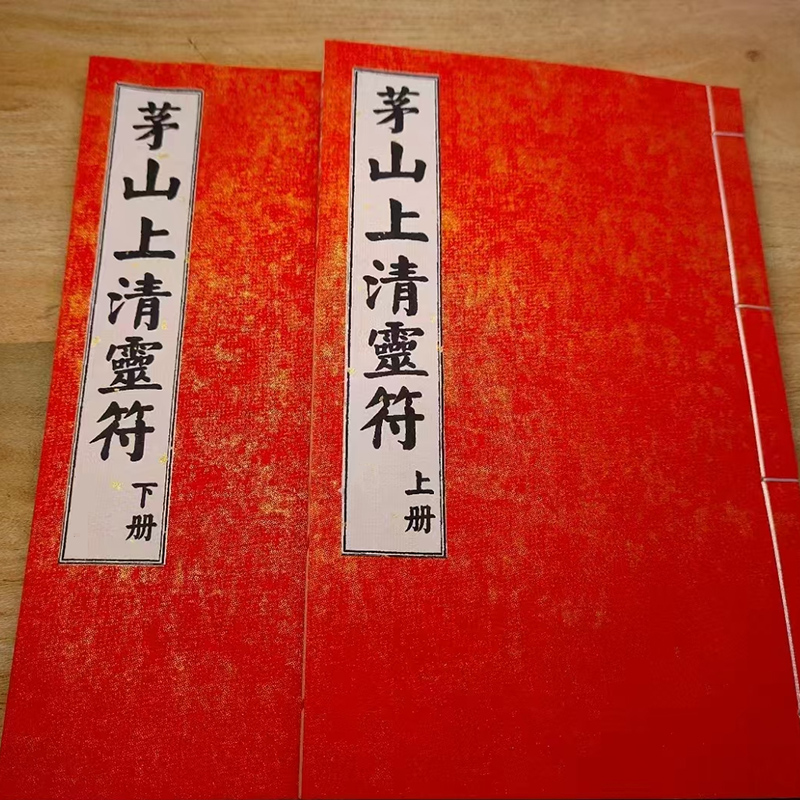 茅山上清靈符
上册
茅山上清靈符
下册